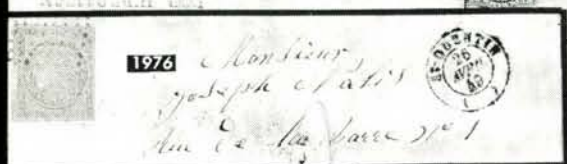 1976
Monsieur,
Joseph
Rue De la barre N° 1
ST QUENTIN
26
AVRIL
49